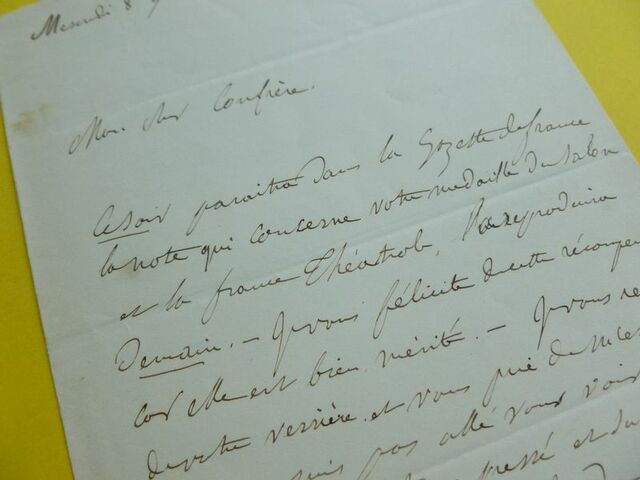 Mercredi 8
Mon cher Confrère.
Ce soir paraîtra dans la Gazette de france
la note qui concerne votre médaille du Salon
et la france Théatrale, la reproduira
Demain. – Je vous félicite de cette récompen
car elle est bien mérité. – Je vous re
de votre verrière et vous prie de
suis pas allé vous voir
pressé et